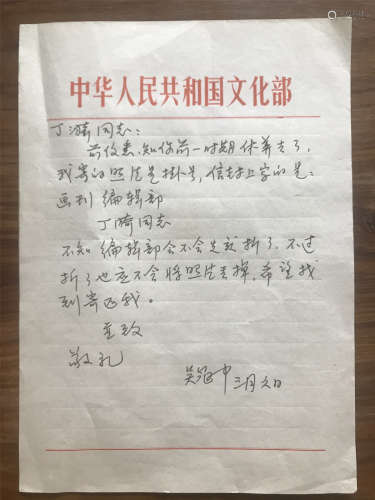 中华人民共和国文化部
丁漪同志:
前信悉,知你前一时期休养去了,
我寄的照片是挂号,信封上写的是:
画刊编辑部
丁漪同志
不知编辑部会不会先拆了,不过
拆了也应不会将照片丢掉,希望找
到寄还我。
至致
敬礼
吴冠中 三月